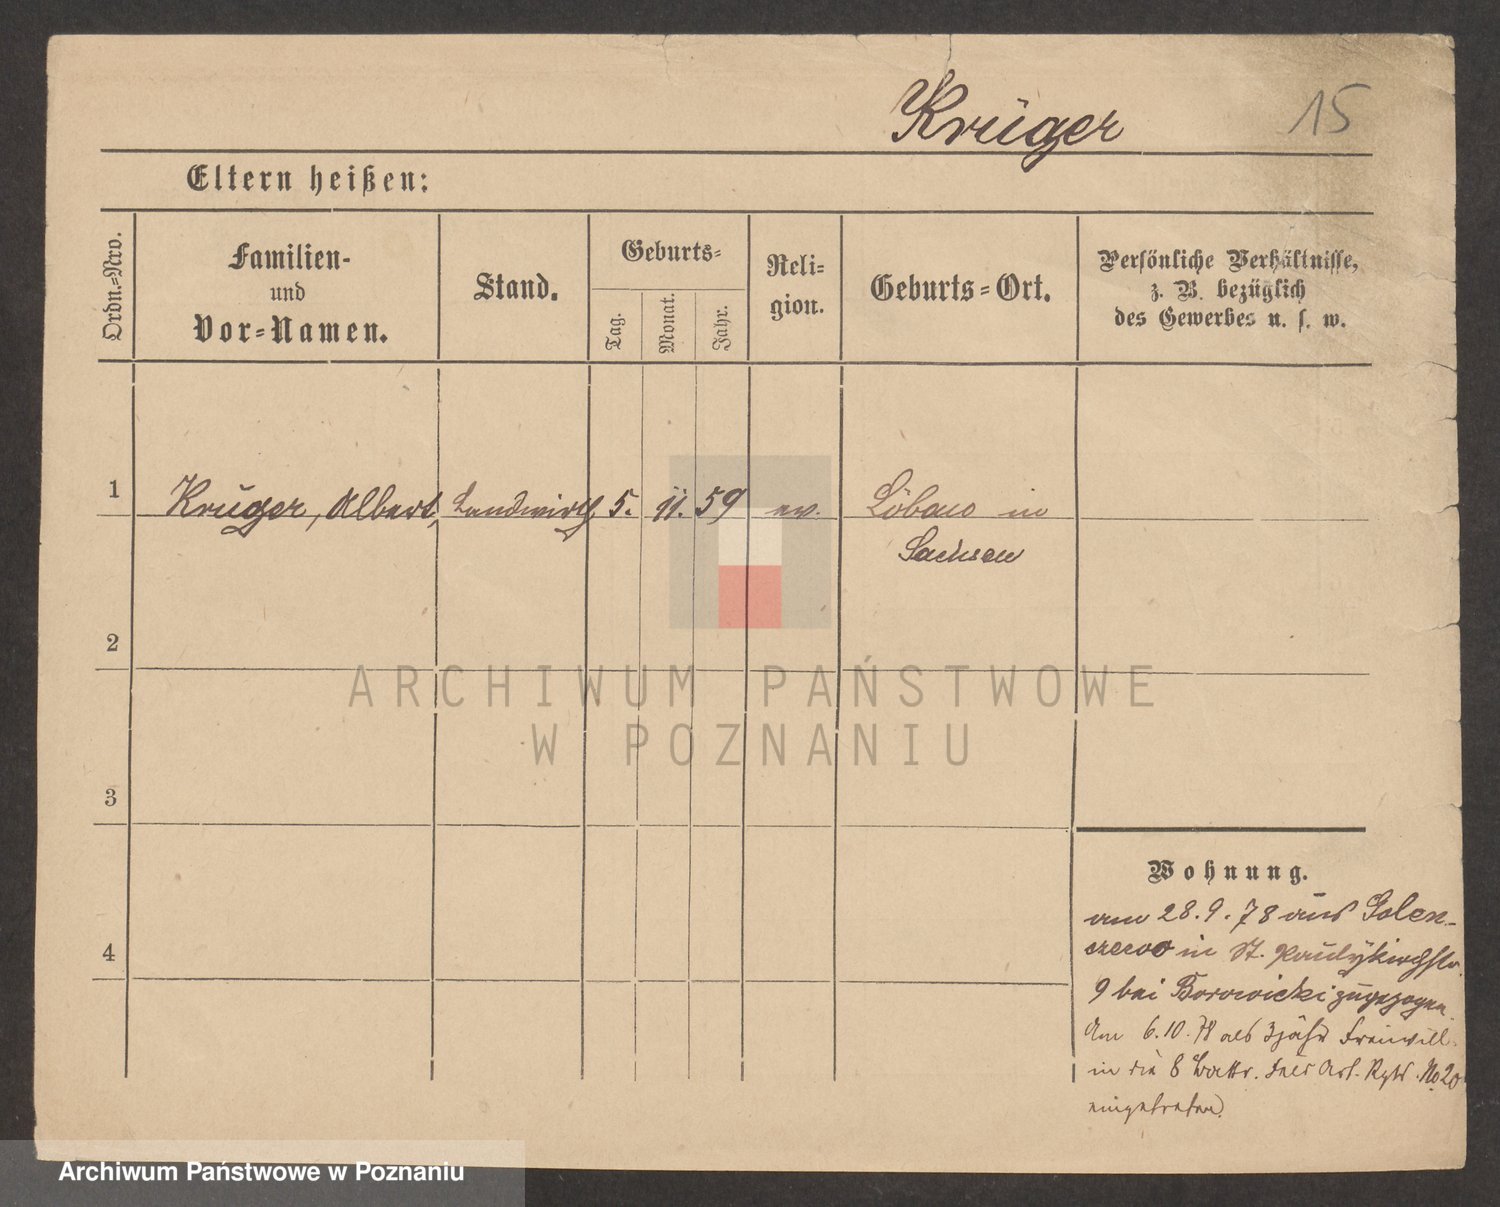 Krüger
15
Eltern heißen:
Ordn.-Nro.
Familien-
und
Vor-Namen.
Stand.
Geburts-
Tag.
Monat.
Jahr.
Reli-
gion.
Geburts-Ort.
Persönliche Verhältnisse,
z. B. bezüglich
des Gewerbes u. s. w.
1
Krüger, Albert, Landwirth 5. 11. 59 ev. Löbau in
Sachsen
2
3
4
ARCHIWUM PAŃSTWOWE
W POZNANIU
Wohnung.
am 28.9.78 aus Golen-
czewo in St. Paulykirchstr.
9 bei Borowicki zugezogen.
Am 6.10.78 als 3jähr Freiwill.
in die 8 Battr. Feld Art. Rgts. No 20
eingetreten.
Archiwum Państwowe w Poznaniu